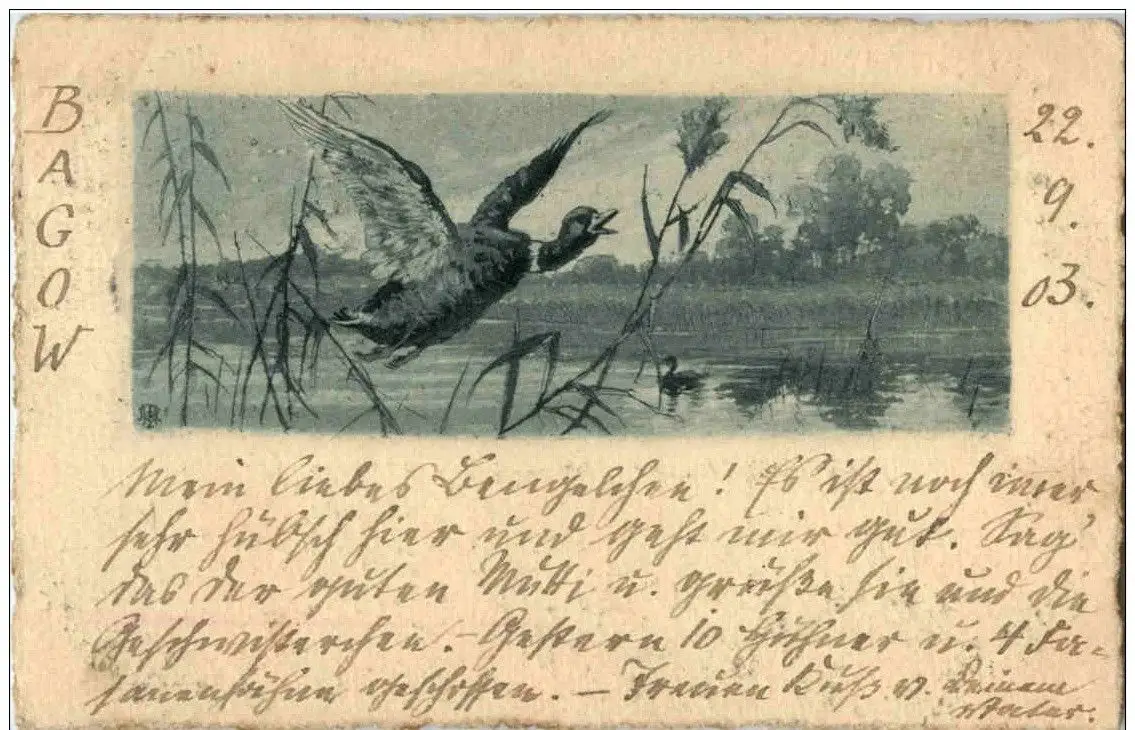 BAGOW
22.
9.
03.
Mein liebes Bengelchen! Es ist noch immer
sehr hübsch hier und geht mir gut. Sag'
das der guten Mutti u. grüße sie und die
Geschwisterchen. – Gestern 10 Hühner u. 4 Fa-
sanenhähne geschossen. – Treuen Kuß v. Deinem
Vater.